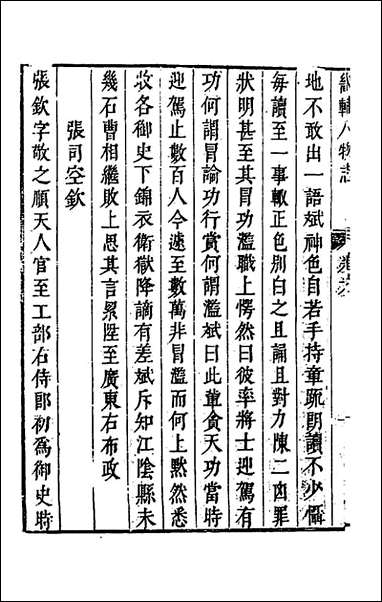 畿輔人物志
地不敢出一語斌神色自若手持章疏朗讀不少懾
每讀至一事輒正色別白之且誦且對力陳二凶罪
狀明甚至其冒功濫職上愕然曰彼率將士迎駕有
功何謂冒諭功行賞何謂濫斌曰此輩貪天功當時
迎駕止數百人今遽至數萬非冒濫而何上默然悉
收各御史下錦衣衛獄降謫有差斌斥知江陰縣未
幾石曹相繼敗上思其言累陞至廣東右布政
張司空欽
張欽字敬之順天人官至工部右侍郎初爲御史時